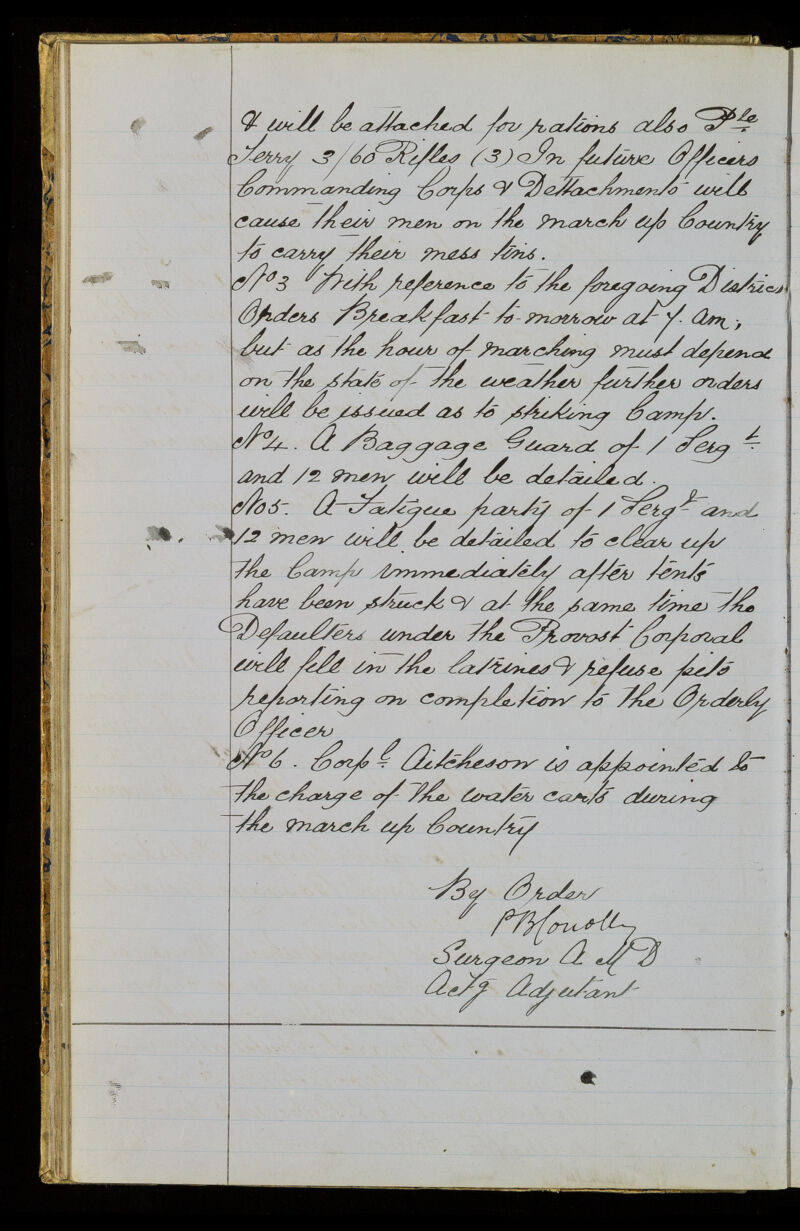 & will be attached for rations also Pte
Terry 3/60 Rifles (3) In future Officers
Commanding Corps & Dettachments will
cause their men on the march up Country
to carry their mess tins.
No 3 With reference to the foregoing District
Orders Breakfast to-morrow at 7. am,
but as the hour of marching must depend
on the state of the weather further orders
will be issued as to striking Camp.
No 4. A Baggage Guard of 1 Sergt
and 12 men will be detailed.
No 5. A Fatigue party of 1 Sergt and
12 men will be detailed to clear up
the Camp immediately after tents
have been struck & at the same time the
Defaulters under the Provost Corporal
will fill in the latrines & refuse pits
reporting on completion to the Orderly
Officer
No 6. Corpl Aitcheson is appointed to
the charge of the water carts during
the march up Country
By Order
PB Conolly
Surgeon A M D
Actg Adjutant